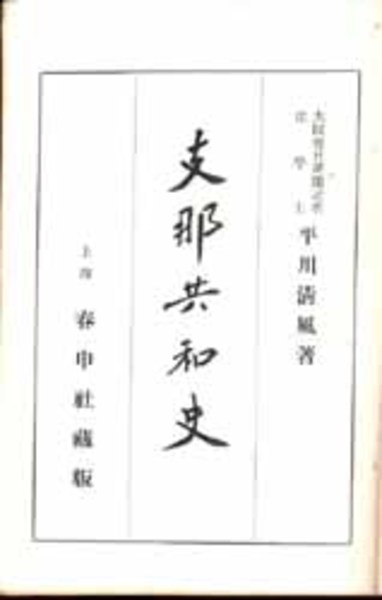 大阪每日新聞記者
法學士
平川清風著
支那共和史
上海
春申社蔵版